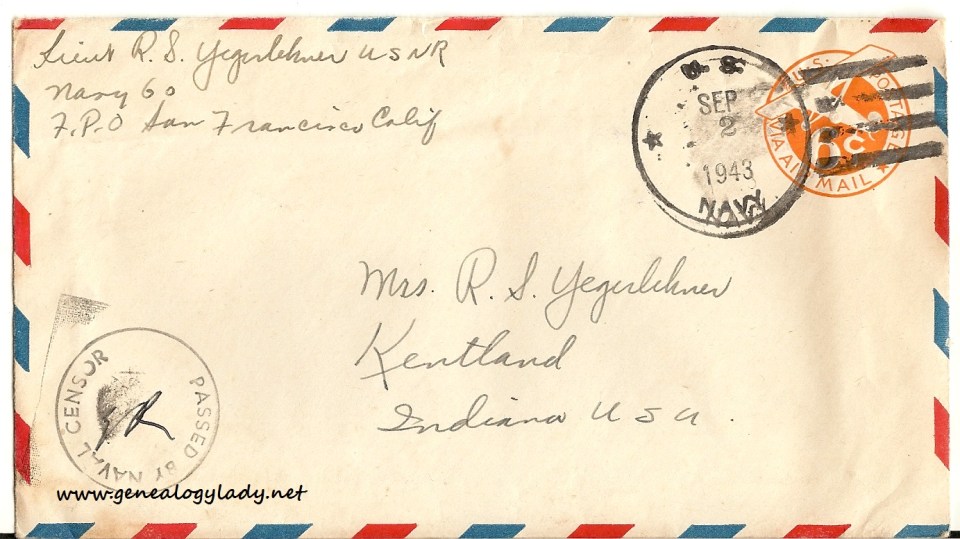 Lieut R. S. Yegerlehner USNR
Navy 60
F.P.O San Francisco Calif
U.S.
SEP
2
1943
NAVY
U.S. POSTAGE
6c
VIA AIR MAIL
Mrs. R. S. Yegerlehner
Kentland
Indiana U S A.
PASSED BY NAVAL CENSOR
www.genealogylady.net